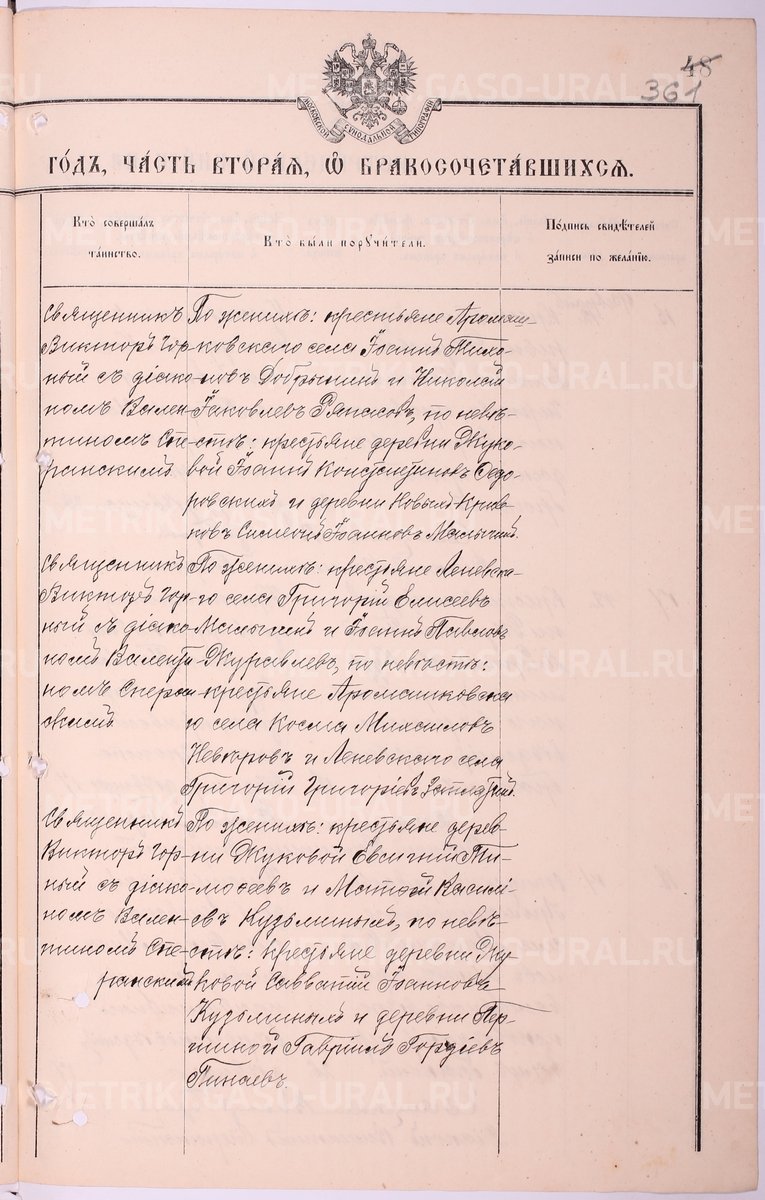 48
361
МОСКОВСКОЙ СѴНОДАЛЬНОЙ ТИПОГРАФІИ
ГО́ДЪ, ЧА́СТЬ ВТОРА́Я, Ѡ҆ БРАКОСОЧЕТА́ВШИХСЯ.
Кто̀ соверша́лъ
та́инство.
Кто̀ бы́ли порꙋчи́тели.
По́дпись свидѣ́телей
за́писи по жела́нїю.
Священникъ
Викторъ Гор-
ный съ діако-
номъ Вален-
тиномъ Спе-
ранскимъ
По женихѣ: крестьяне Арамаш-
ковскаго села Іоаннъ Тихо-
новъ Добрынинъ и Николай
Іаковлевъ Ряпасовъ, по невѣ-
стѣ: крестьяне деревни Жуко-
вой Іоаннъ Константиновъ Федо-
ровскихъ и деревни Новыхъ Крив-
ковъ Симеонъ Іоанновъ Малыгинъ.
Священникъ
Викторъ Гор-
ный съ діако-
номъ Валенти-
номъ Сперан-
скимъ
По женихѣ: крестьяне Леневска-
го села Григорій Елисеевъ
Малыгинъ и Іоаннъ Павловъ
Журавлевъ, по невѣстѣ:
крестьяне Арамашковска
го села Косма Михаиловъ
Невѣровъ и Леневскаго села
Григорій Григоріевъ
Священникъ
Викторъ Гор-
ный съ діако-
номъ Вален-
тиномъ Спе-
ранскимъ
По женихѣ: крестьяне дерев-
ни Жуковой Евсигній Ти-
моѳеевъ и Матѳей Васильи-
евъ Кузьминыхъ, по невѣ-
стѣ: крестьяне деревни Жу
ковой Савватій Іоанновъ
Кузьминыхъ и деревни Пер-
шиной Гавріилъ Гордіевъ
Пинаевъ.